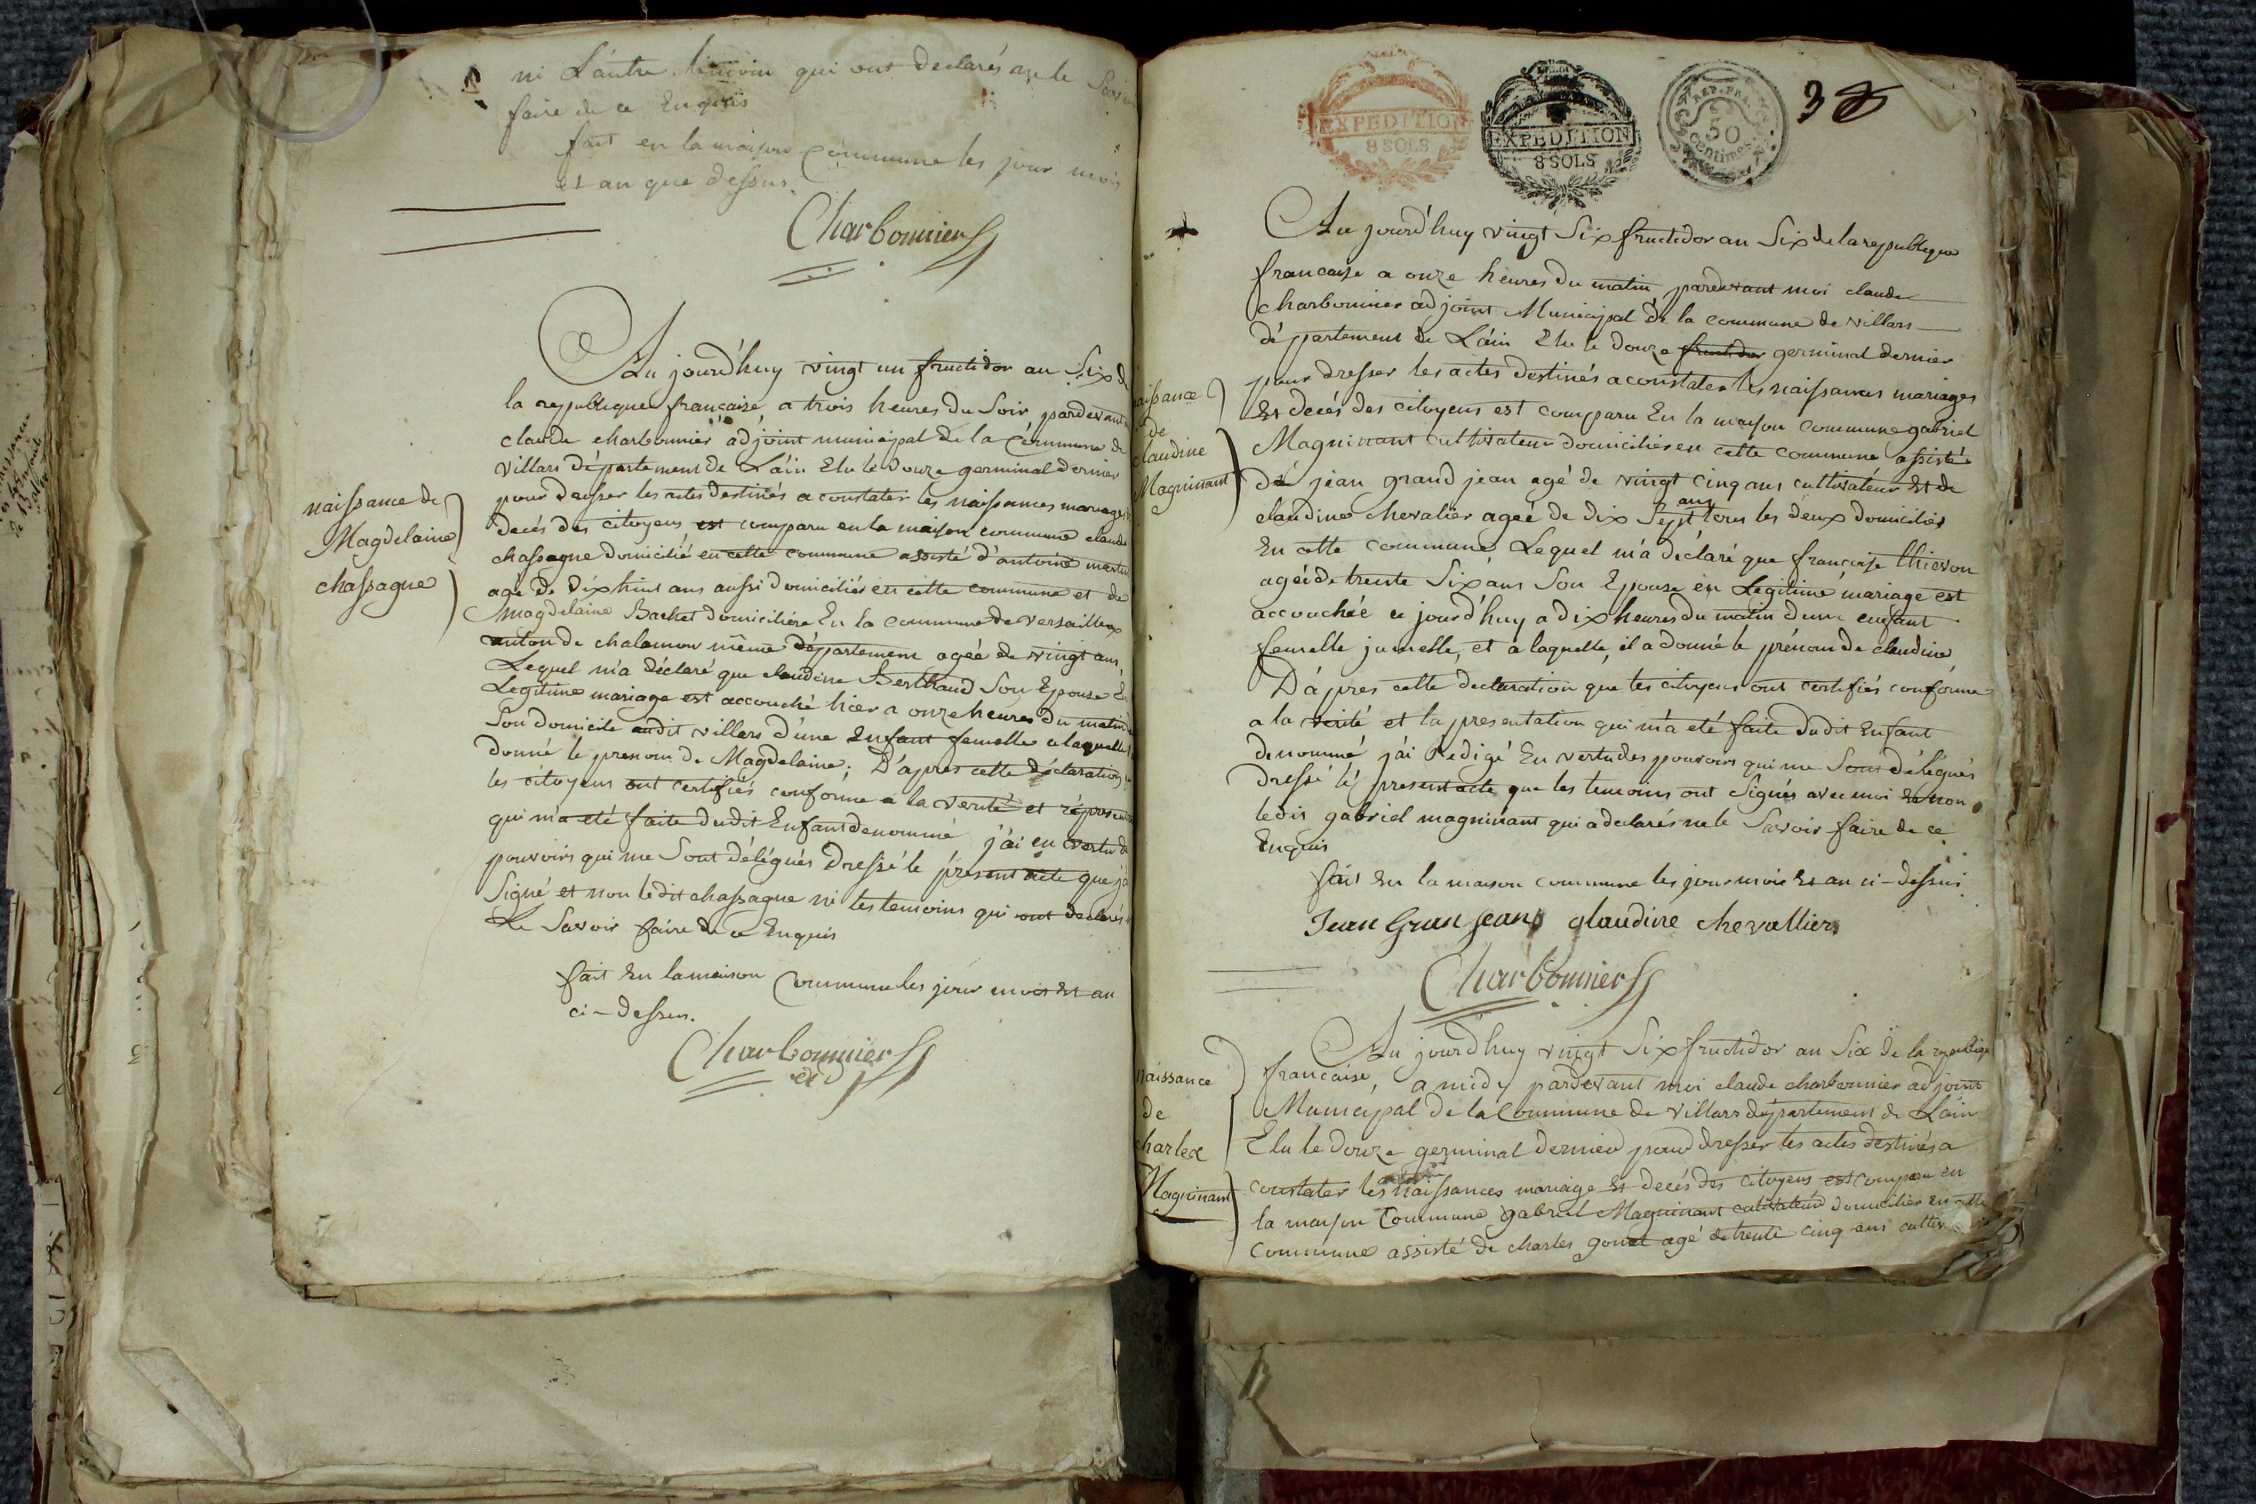 ni L'autre temoin qui ont declarés ne le Savoir
faire de ce Enquis
fait en la maison commune les jour mois
et an que dessus.
Charbonnier
naissance de
Magdelaine
chassagne
Au jourd'huy vingt un fructidor an Six de
la republique francaise a trois heures du Soir pardevant
claude charbonnier adjoint municipal de la Commune de
villars département de L'ain Elu le douze germinal dernier
pour dresser les actes destinés a constater les naissances mariages
decés des citoyens est comparu en la maison commune claude
chassagne domicilié en cette commune assisté d'antoine
agé de dix huit ans aussi domiciliés en cette commune et de
magdelaine Bachet domiciliére En la commune de versailleux
canton de chalamon même département ageé de vingt ans,
Lequel m'a déclaré que claudine Berthaud Son Epouse En
Legitime mariage est accouché hier a onze heures du matin
Son domicile audit villars d'une Enfant femelle a laquelle
donné le prenom de Magdelaine; D'apres cette déclaration
les citoyens ont certifiés conforme a la verité et
qui m'a eté faite dudit Enfant denommé j'ai en vertu de
pouvoirs qui me Sont délégués dressé le présent acte que j'ai
Signé et non ledit chassagne ni les temoins qui ont declarés
Le Savoir faire de ce Enquis
fait En la maison Commune les jour mois Et an
ci-dessus.
Charbonnier
adj
EXPEDITION
8 SOLS
EXPEDITION
8 SOLS
REP. FRA.
50
Centimes
3
naissance
de
claudine
Magninant
Au jourd'huy vingt Six fructidor an Six de la republique
francaise a onze heures du matin, pardevant moi claude
charbonnier adjoint Municipal de la commune de villars
département de L'ain Elu le douze fructidor germinal dernier
pour dresser les actes destinés a constater les naissances mariages
Et decés des citoyens est comparu En la maison commune gabriel
Magninant cultivateur domicilié en cette commune assisté
de jean grand jean agé de vingt cinq ans cultivateur Et de
ans
claudine chevalier ageé de dix Sept tous les deux domiciliés
En cette commune Lequel m'a déclaré que francoise thievon
ageé de trente Six ans Son Epouse en Légitime mariage est
accouchée ce jourd'huy a dix heures du matin d'une enfant
femelle jumelle, et a laquelle, il a donné le prénom de claudine
D'apres cette declaration que les citoyens ont certifiés conforme
a la verité et la presentation qui m'a eté faite dudit Enfant
denommé j'ai Redigé En vertu des pouvoirs qui me Sont délégués
dressé le present acte que les temoins ont Signés avec moi Et non
ledit gabriel magninant qui a declarés ne le Savoir faire de ce
Enquis
fait En la maison commune les jour mois Et an ci-dessus
Jean Gran jean claudine chevallier
Charbonnier
naissance
de
charles
Magninant
Au jourd'huy vingt Six fructidor an Six de la republique
francaise, a midy pardevant moi claude charbonnier adjoint
Municipal de la Commune de villars département de L'ain
Elu le douze germinal dernier pour dresser les actes destinés a
constater les naissances mariage Et decés des citoyens est comparu en
la maison Commune gabriel Magninant cultivateur domicilié en cette
commune assisté de charles gonet agé de trente cinq ans